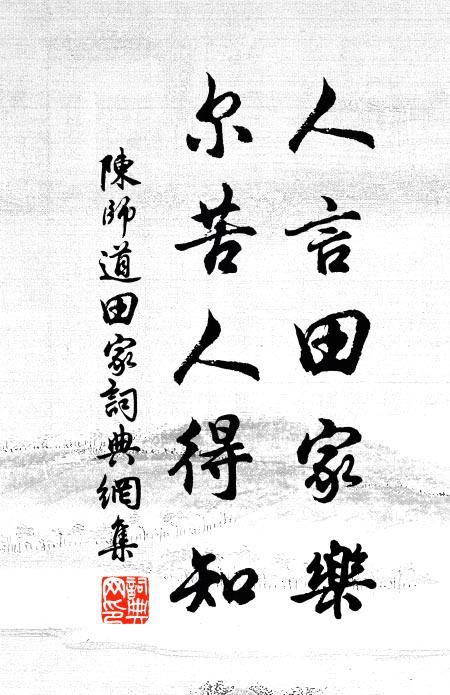 人言田家樂
尔苦人得知
陳師道田家詞典網集
詞典
网印